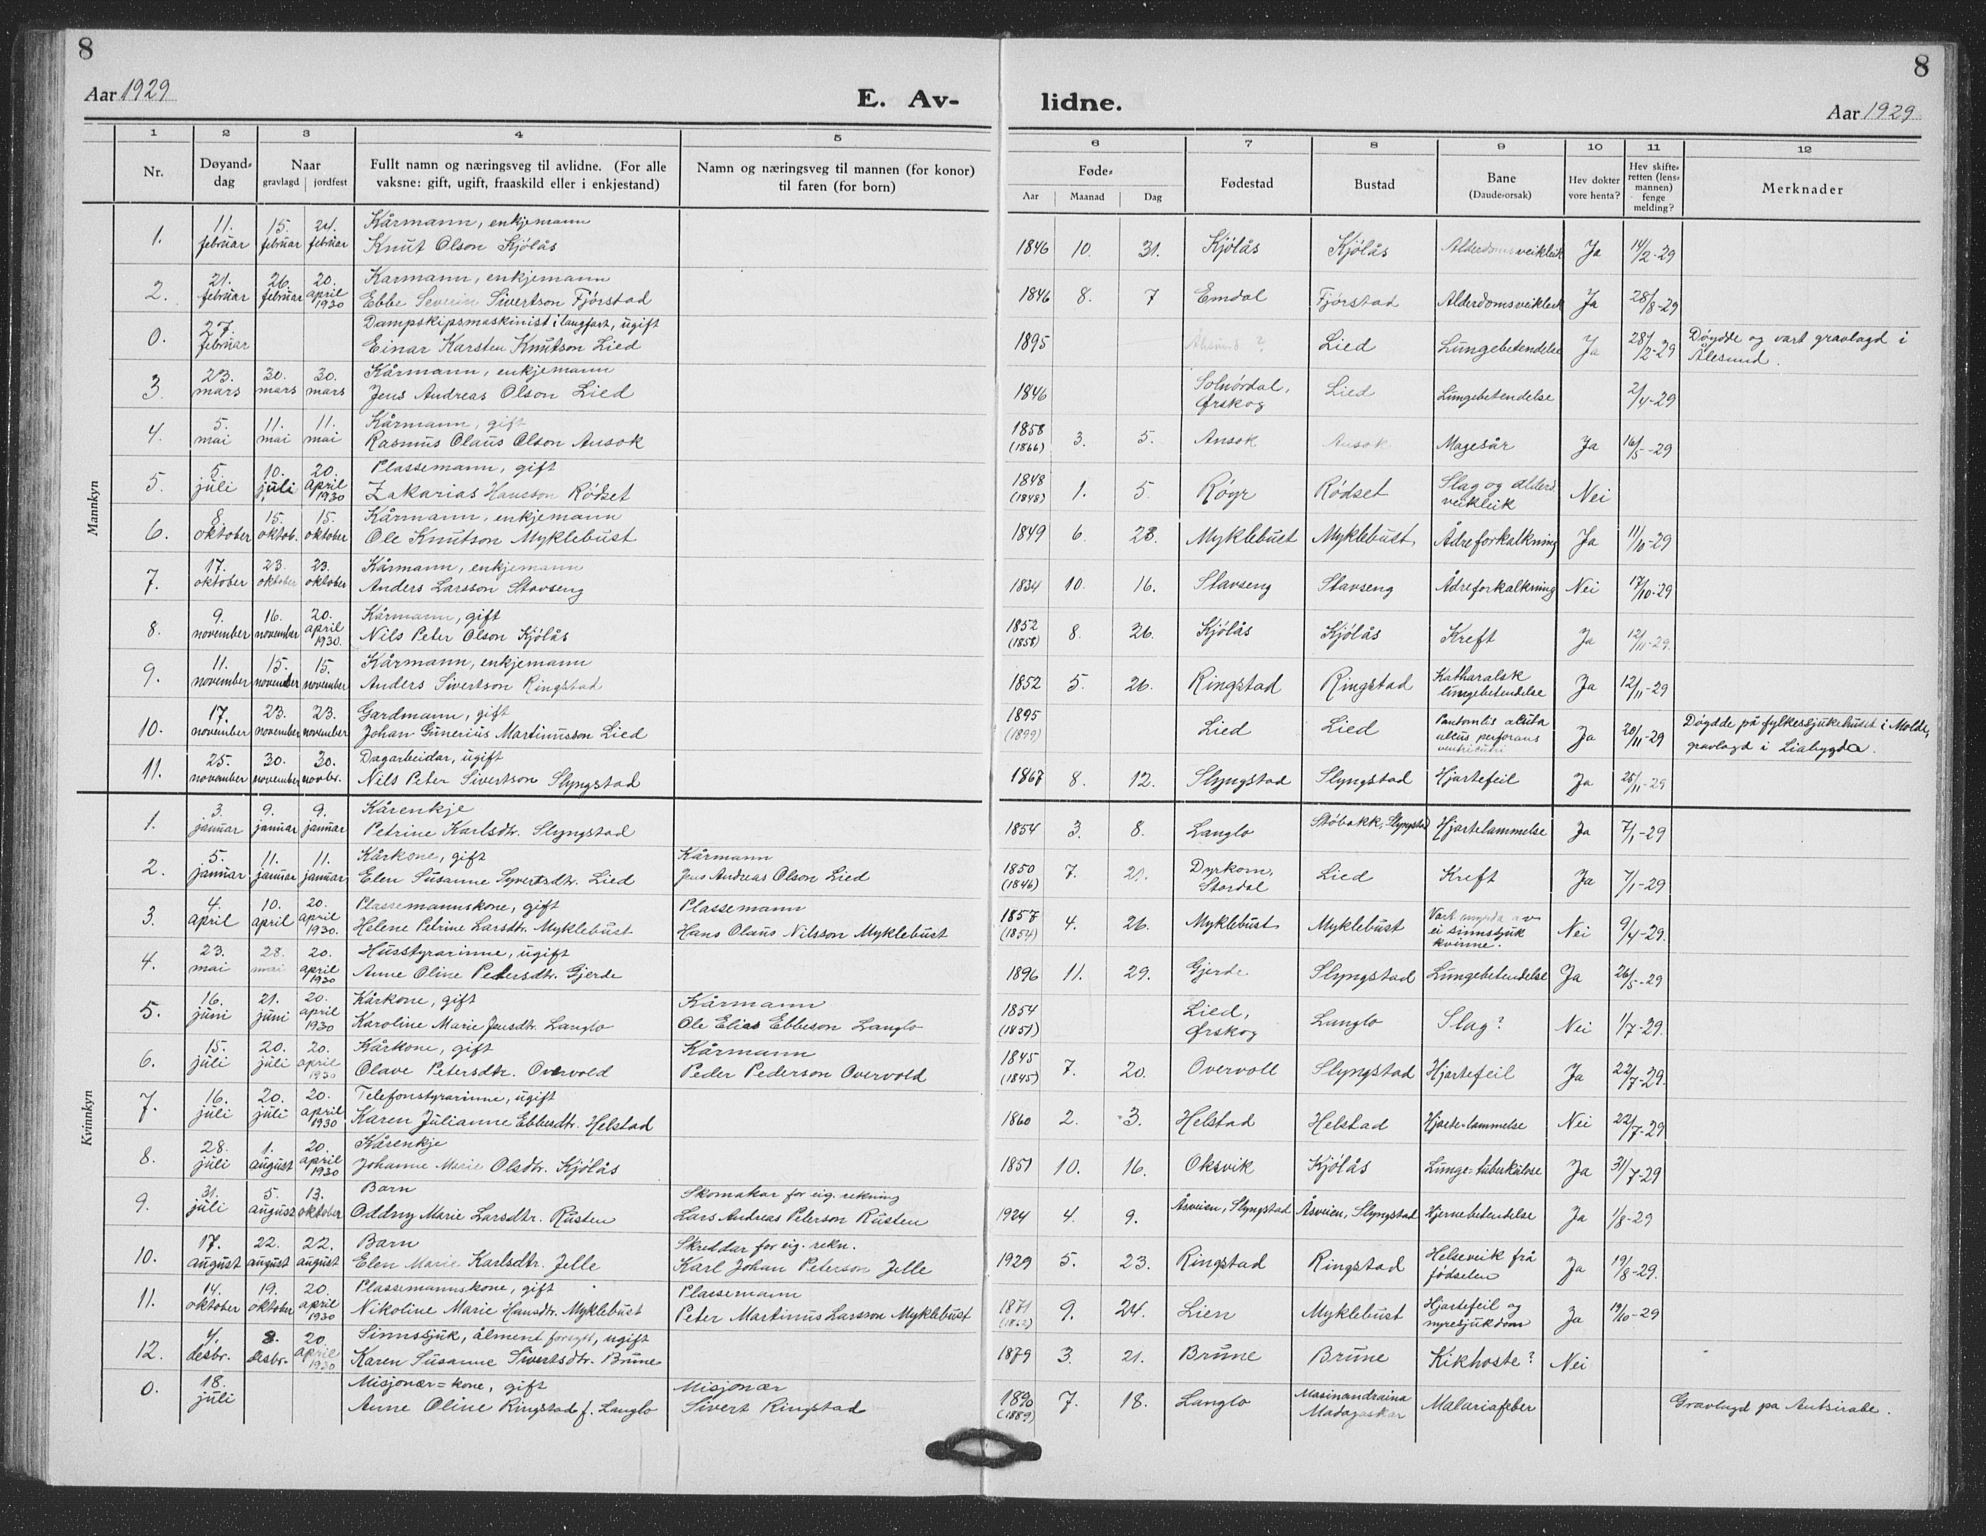 8
8
Aar 1929
E. Av-
lidne.
Aar 1929
1 2 3 4 5 6 7 8 9 10 11 12
Nr.
Døyand-dag
Naar gravlagd | jordfest
Fullt namn og næringsveg til avlidne. (For alle vaksne: gift, ugift, fraaskild eller i enkjestand)
Namn og næringsveg til mannen (for konor) til faren (for born)
Føde- Aar Maanad Dag
Fødestad
Bustad
Bane (Daude-orsak)
Hev dokter vore henta?
Hev skifte-retten (lens-mannen) fenge melding?
Merknader
Mannkyn
1. 11. februar 15. februar 24. februar Kårmann, enkjemann Knut Olson Kjølås 1846 10. 31. Kjølås Kjølås Alderdomsveikleik Ja 14/2-29
2. 21. februar 26. februar 20. april 1930 Karmann, enkjemann Ebbe Severin Sivertson Fjørstad 1846 8. 7 Emdal Fjørstad Alderdomsveikleik Ja 28/8-29
0. 27. februar Dampskipsmaskinist i langfart, ugift Einar Karsten Knutson Lied 1895 Lied Lungebetendelse Ja 28/2-29 Døydde og vart gravlagd i Ålesund.
3. 23. mars 30. mars 30. mars Kårmann, enkjemann Jens Andreas Olson Lied 1846 Solnørdal, Ørskog Lied Lungebetendelse 2/4-29
4. 5. mai 11. mai 11. mai Kårmann, gift Rasmus Olaus Olson Ansok 1858 (1866) 3. 5. Ansok Ansok Magesår Ja 16/5-29
5. 5. juli 10. juli 20. april 1930 Plassemann, gift Zakarias Hansson Rødset 1848 (1848) 1. 5. Røyr Rødset Slag og alderd. veikleik Nei
6. 8. oktober 15. oktob. 15. oktober Kårmann, enkjemann Ole Knutson Myklebust 1849 6. 28. Myklebust Myklebust Ådreforkalkning Ja 11/10-29
7. 17. oktober 23. oktober 23. oktober Kårmann, enkjemann Anders Larsson Stavseng 1834 10. 16. Stavseng Stavseng Ådreforkalkning Nei 17/10-29
8. 9. november 16. november 20. april 1930. Kårmann, gift Nils Peter Olson Kjølås 1852 (1858) 8. 26. Kjølås Kjølås Kreft Ja 12/11-29.
9. 11. november 15. november 15. november Kårmann, enkjemann Anders Sivertson Ringstad 1852 5. 26. Ringstad Ringstad Katharalsk lungebetendelse Ja 12/11-29
10. 17. november 23. november 23. november Gardmann, gift Johan Gunerius Martinusson Lied 1895 (1899) Lied Lied akuta ulcus perforans ventriculi Ja 20/11-29 Døydde på fylkessjukehuset i Molde, gravlagd i Liabygda.
11. 25. november 30. november 30. novbr. Dagarbeidar, ugift Nils Peter Sivertson Slyngstad 1867 8. 12. Slyngstad Slyngstad Hjartefeil Ja 25/11-29
Kvinnkyn
1. 3. januar 9. januar 9. januar Kårenkje Petrine Karlsdtr. Slyngstad 1854 3. 8. Langlo Støbakk, Slyngstad Hjartelammelse Ja 7/1-29
2. 5. januar 11. januar 11. januar Kårkone, gift Elen Susanne Syvertsdtr. Lied Kårmann Jens Andreas Olson Lied 1850 (1846) 7. 21. Dyrkorn, Stordal Lied Kreft Ja 7/1-29
3. 4. april 10. april 20. april 1930. Plassemannskone, gift Helene Petrine Larsdtr. Myklebust Plassemann Hans Olaus Nilsson Myklebust 1857 (1854) 4. 26. Myklebust Myklebust Vart myrda av ei sinnssjuk kvinne. Nei 9/4-29.
4. 23. mai 28. mai 20. april 1930 Husstyrarinne, ugift Anne Oline Petersdtr. Gjerde 1896 11. 29. Gjerde Slyngstad Lungebetendelse Ja 26/5-29
5. 16. juni 21. juni 20. april 1930 Kårkone, gift Karoline Marie Jensdtr. Langlo Kårmann Ole Elias Ebbeson Langlo 1854 (1851) Lied, Ørskog Langlo Slag? Nei 1/7-29.
6. 15. juli 20. juli 20. april 1930 Kårkone, gift Olave Petersdtr. Overvold Kårmann Peder Pederson Overvold 1845 (1845) 7. 20. Overvoll Slyngstad Hjartefeil Ja 22/7-29.
7. 16. juli 20. juli 20. april 1930 Telefonstyrarinne, ugift Karen Julianne Ebbesdtr. Helstad 1860 2. 3. Helstad Helstad Hjarte-lammelse Nei 22/7-29
8. 28. juli 1. august 20. april 1930 Kårenkje Johanne Marie Olsdtr. Kjølås 1851 10. 16. Oksvik Kjølås Lunge-tuberkulose Ja 31/7-29
9. 31. juli 5. august 13. oktober Barn Oddny Marie Larsdtr. Rusten Skomakar for eig. rekning Lars Andreas Peterson Rusten 1924 4. 9. Åsveien, Slyngstad Åsveien, Slyngstad Hjernebetendelse Ja 1/8-29
10. 17. august 22. august 22. august Barn Elen Marie Karlsdtr. Jelle Skreddar for eig. rekn. Karl Johan Peterson Jelle 1929 5. 23. Ringstad Ringstad Helseveik frå fødselen Ja 19/8-29.
11. 14. oktober 19. oktober 20. april 1930 Plassemannskone, gift Nikoline Marie Hansdtr. Myklebust Plassemann Peter Martinus Larsson Myklebust 1871 (1862) 9. 24. Lien Myklebust Hjartefeil og nyresjukdom Ja 19/10-29
12. 4. desbr. 8. desbr. 20. april 1930 Sinnssjuk, ålment forsytt, ugift Karen Susanne Sivertsdtr. Brune 1879 3. 21. Brune Brune Kikhoste? Nei
0. 18. juli Misjonær-kone, gift Anne Oline Ringstad f. Langlo Misjonær Sivert Ringstad 1890 (1889) 7. 18. Langlo Masinandraina Madagaskar Malariafeber Gravlagd pa Antsirabe.